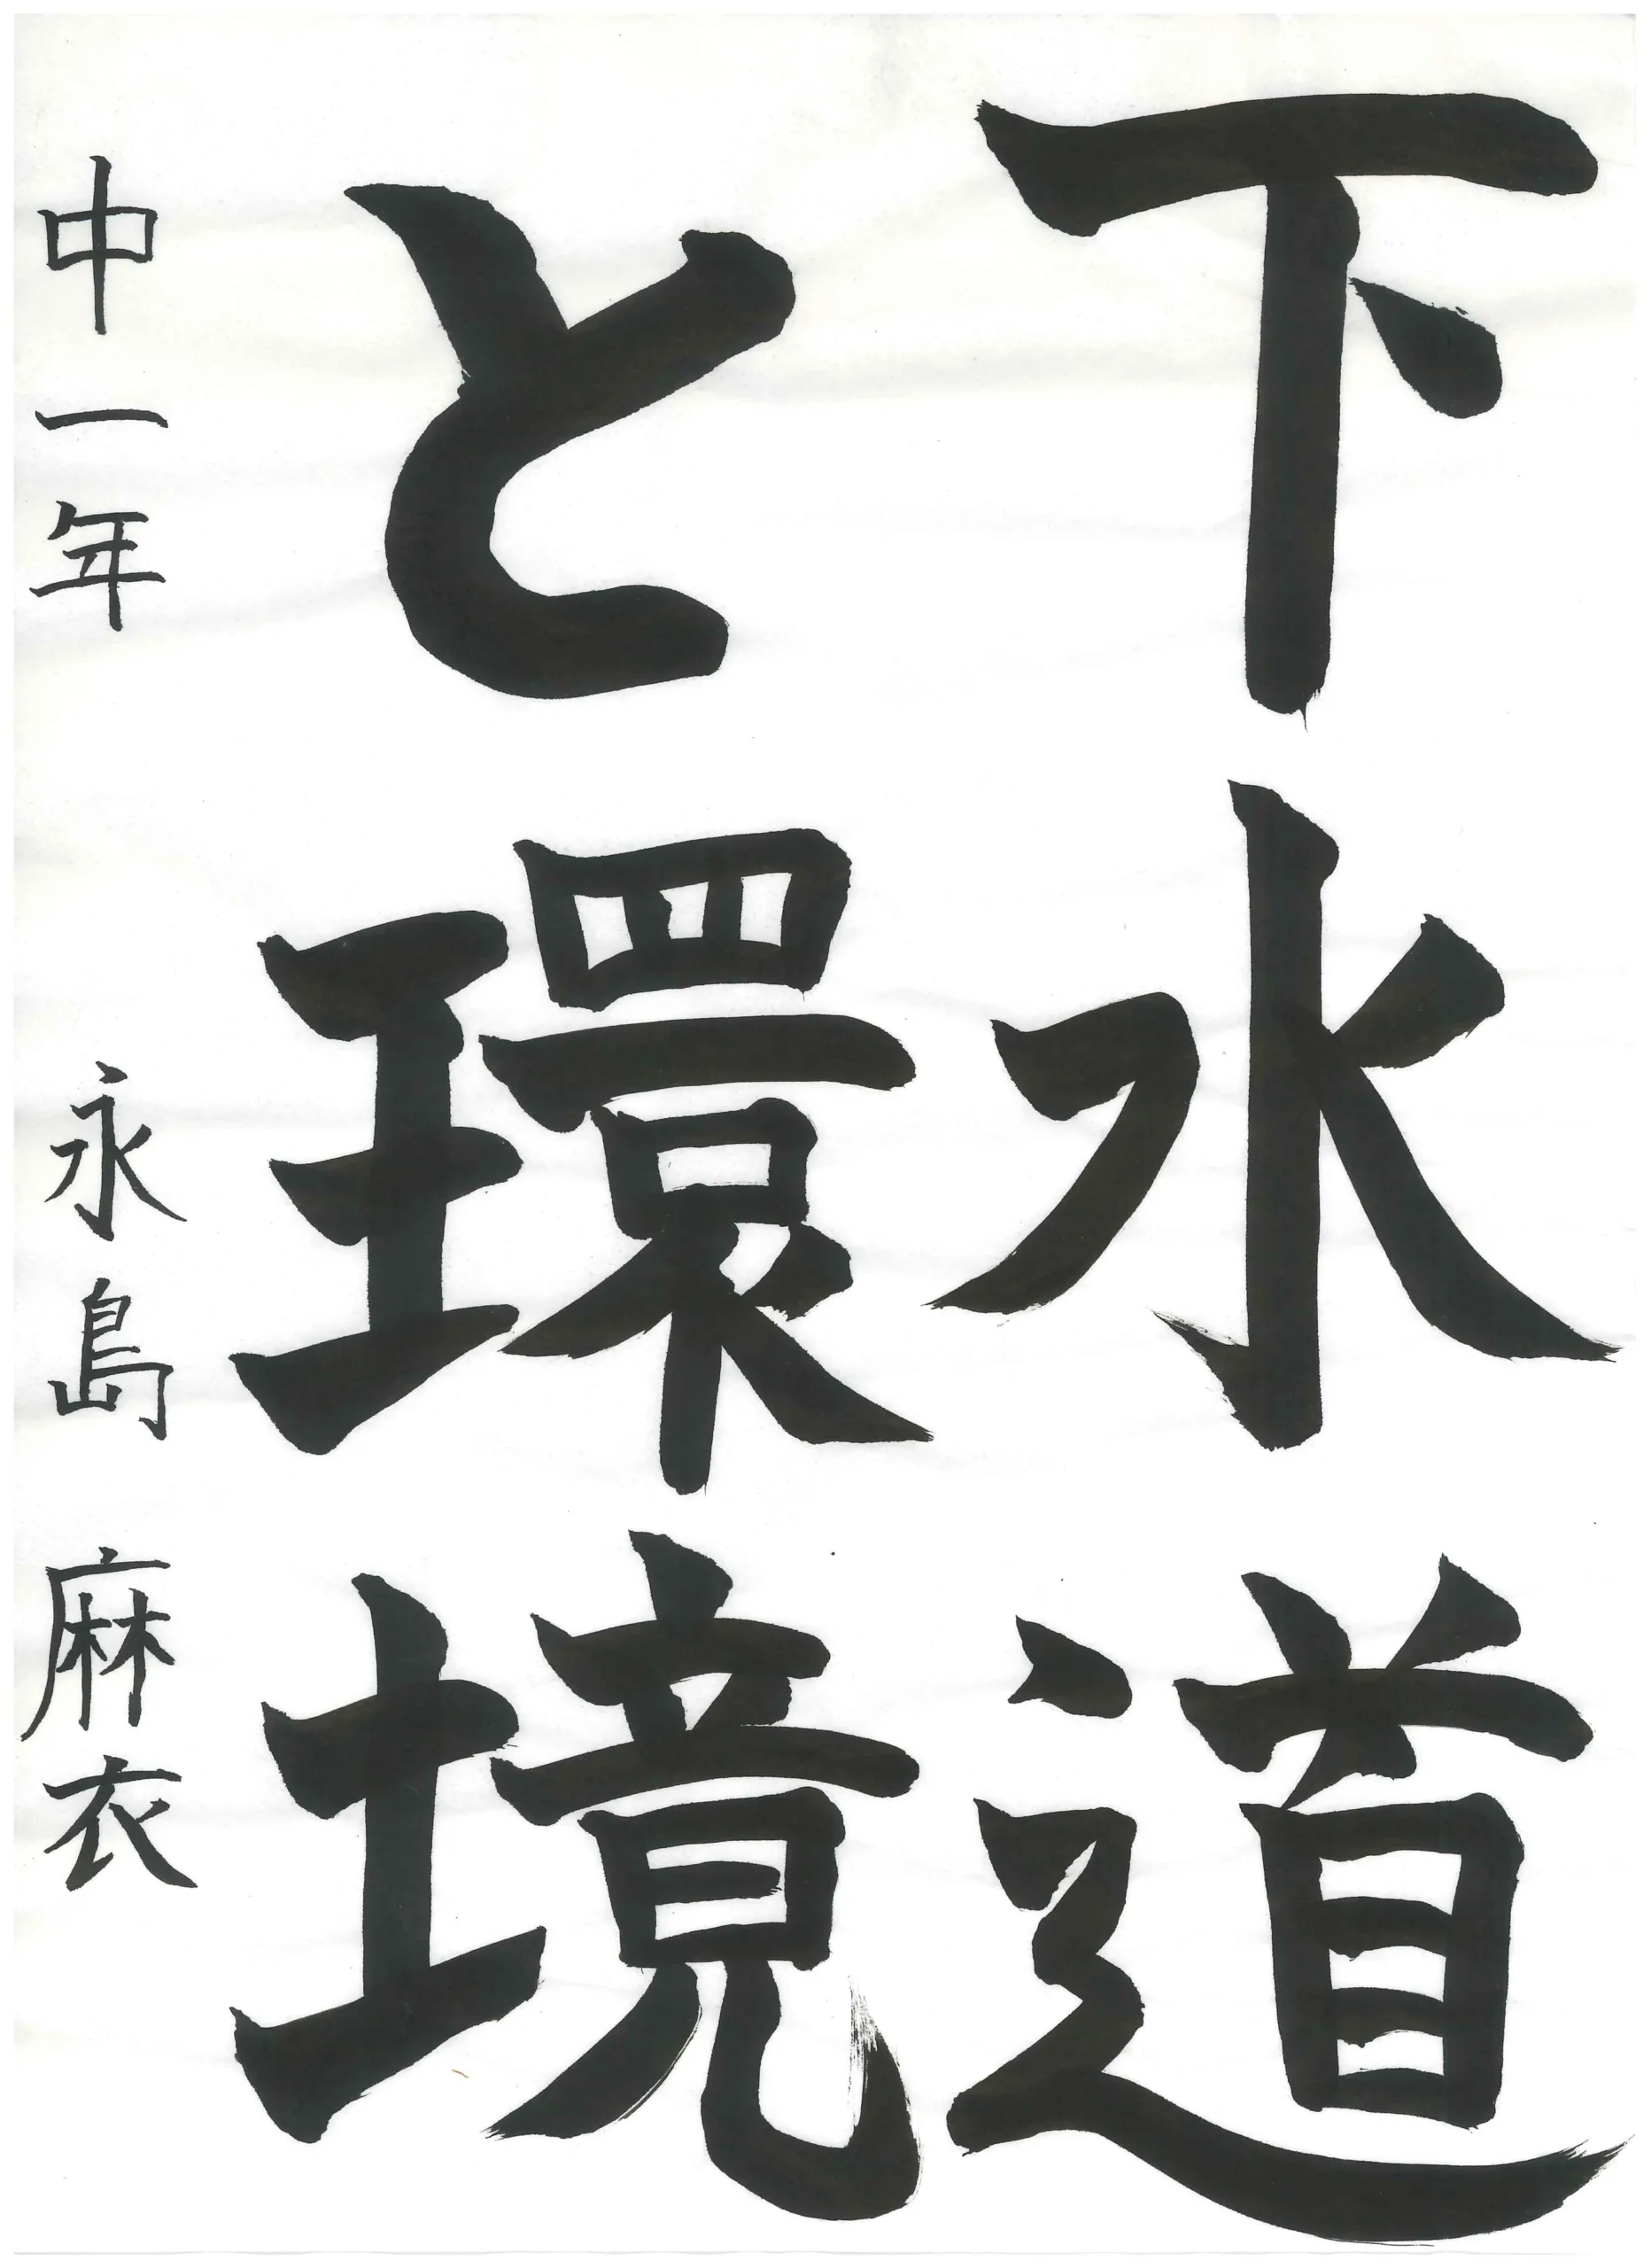 下水道
と環境
中一年 永島麻衣